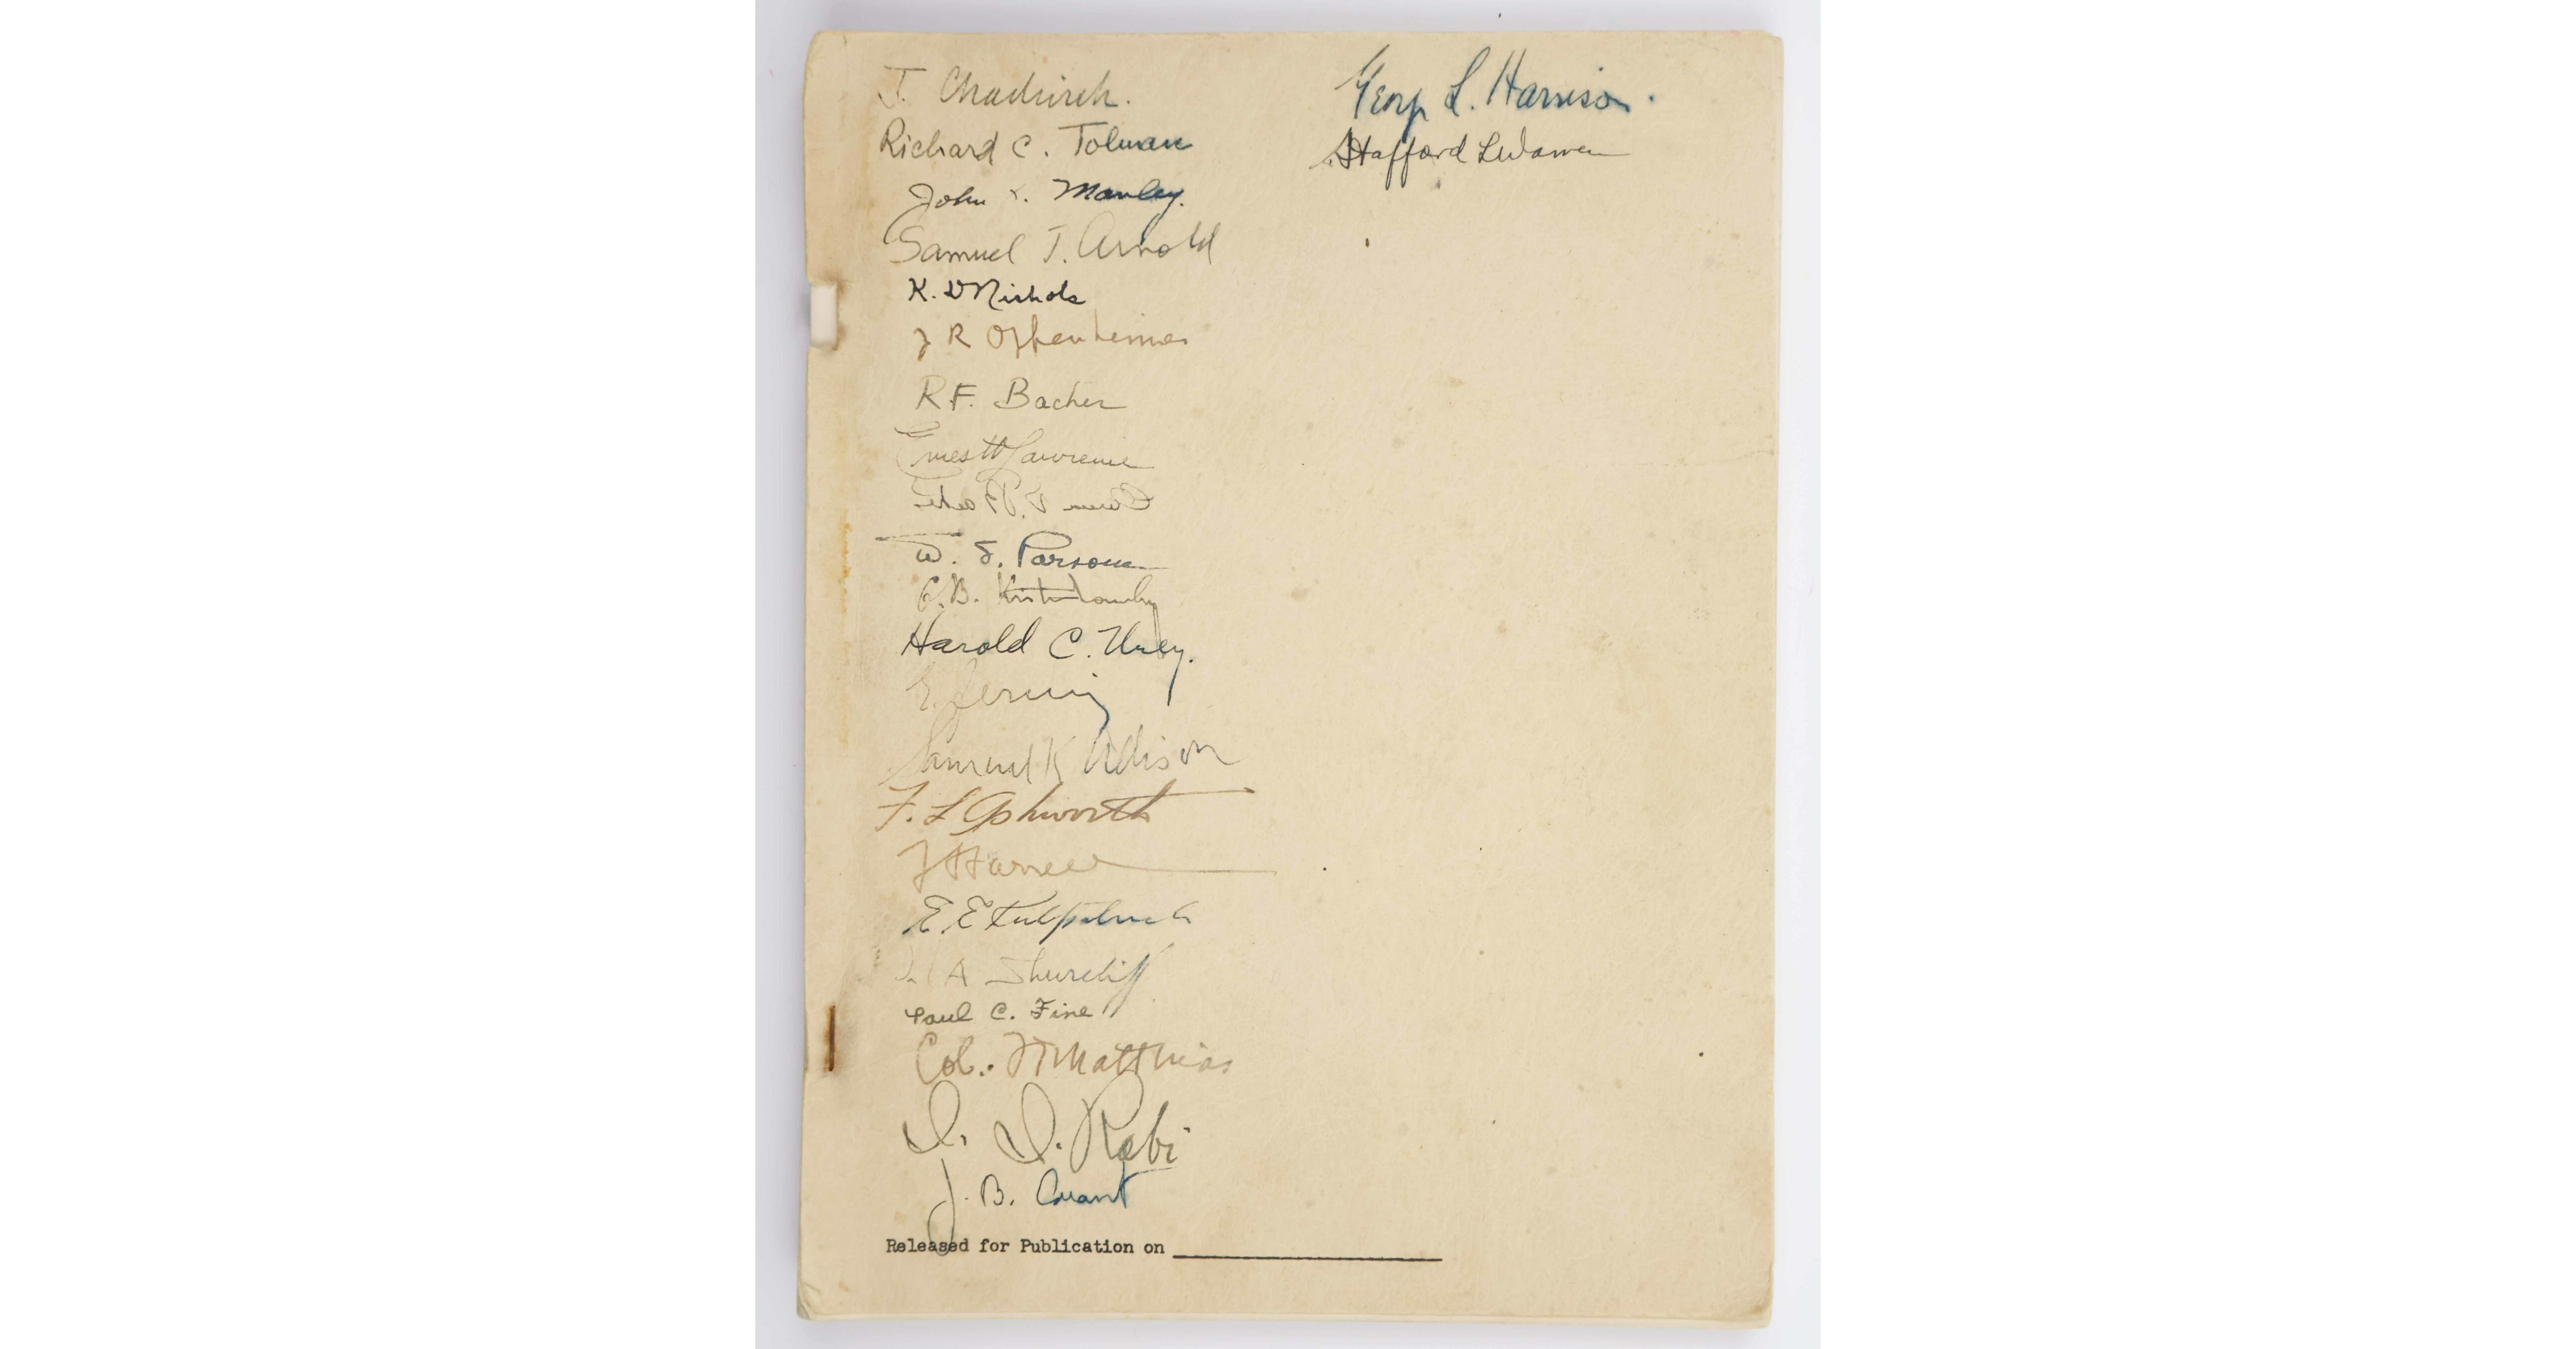 J. Chadwick.
Richard C. Tolman
John H. Manley.
Samuel T. Arnold
K. D Nichols
J R Oppenheimer
R F. Bacher
Ernest O Lawrence
W. S. Parsons
G. B. Kistiakowsky
Harold C. Urey.
E. Fermi
Samuel K Allison
F. L Ashworth
E. E Kirkpatrick
A Shurcliff
Paul C. Fine
Col. F T Matthias
I. I. Rabi
J. B. Conant
Released for Publication on
George L. Harrison.
Stafford L Warren